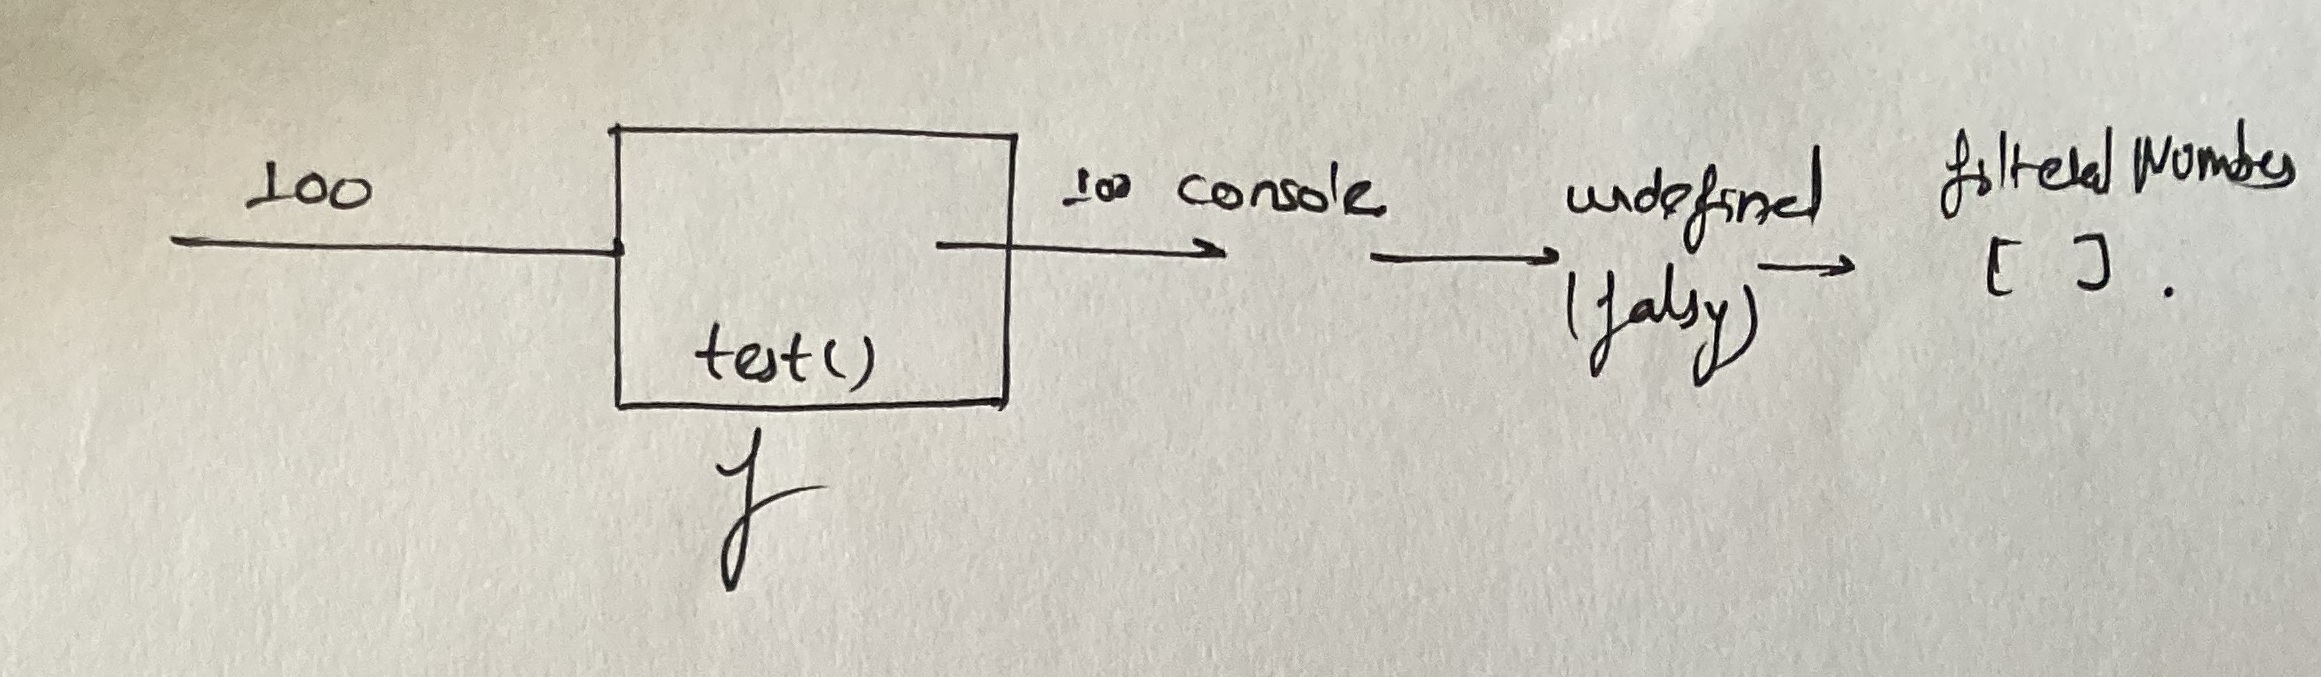 100
test()
f
100 console
undefined
(falsy)
filtered Numbers
[ ] .